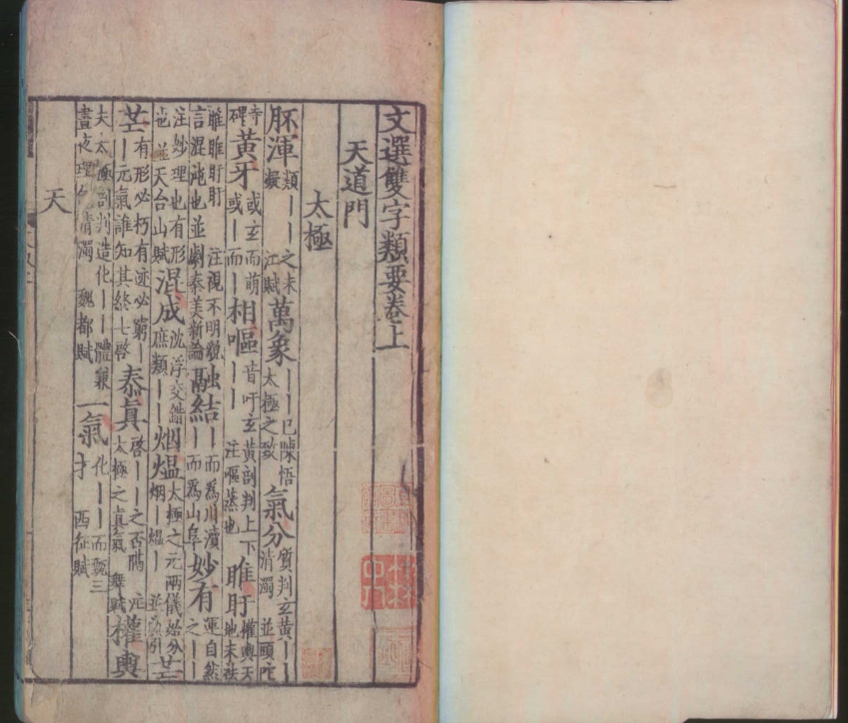 文選雙字類要卷上
天道門
太極
胚渾類——之未凝江賦萬象——已陳悟太極之致氣分質判玄黃——清濁並頭陀
寺碑黃牙或玄而萌或—而—相嘔音吁玄黃剖判上下——注嘔蒸也睢盱權輿天地未袪
睢睢盱盱注視不明貌言混沌也並劇秦美新論融結—而為川瀆—而為山阜妙有運自然之——
注妙理也有形也並天台山賦混成沈浮交錯庶類——烟熅太極之元兩儀始分烟—熅—並引芒
芒有形必朽有迹必窮——元氣誰知其終七啓泰真啓——之否隔注太極之真氣舞賦權輿
夫太極剖判造化——體兼晝夜理清濁魏都賦一氣化——而甄三才西征賦
天